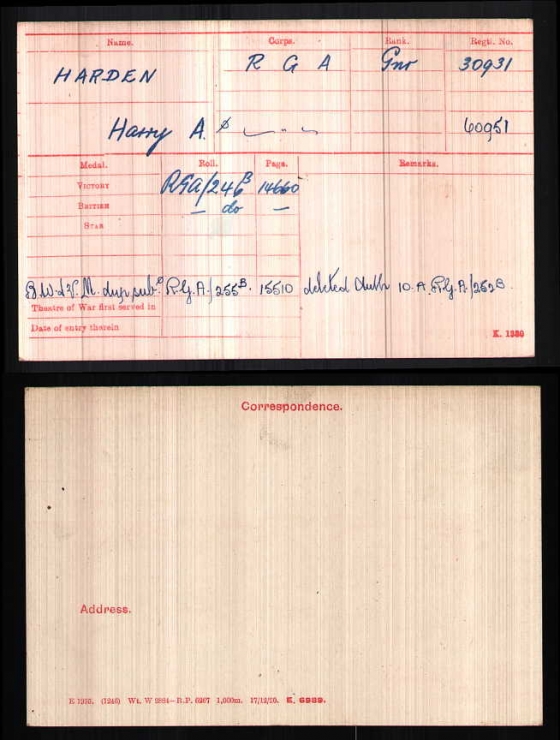 Name. Corps. Rank. Regtl. No.
HARDEN R G A Gnr 30931
Harry A. ∅ — „ — 60951
Medal. Roll. Page. Remarks.
VICTORY RGA/246B 14660
BRITISH — do —
STAR
B.W & V.M. dup sub.d R.G.A./255B. 15510 deleted Auth 10.A. R.G.A/252B.
Theatre of War first served in
Date of entry therein
K. 1380
Correspondence.
Address.
E 1310. (1248) Wt. W 2884—R.P. 6267 1,000m. 17/12/10. K. 6989.